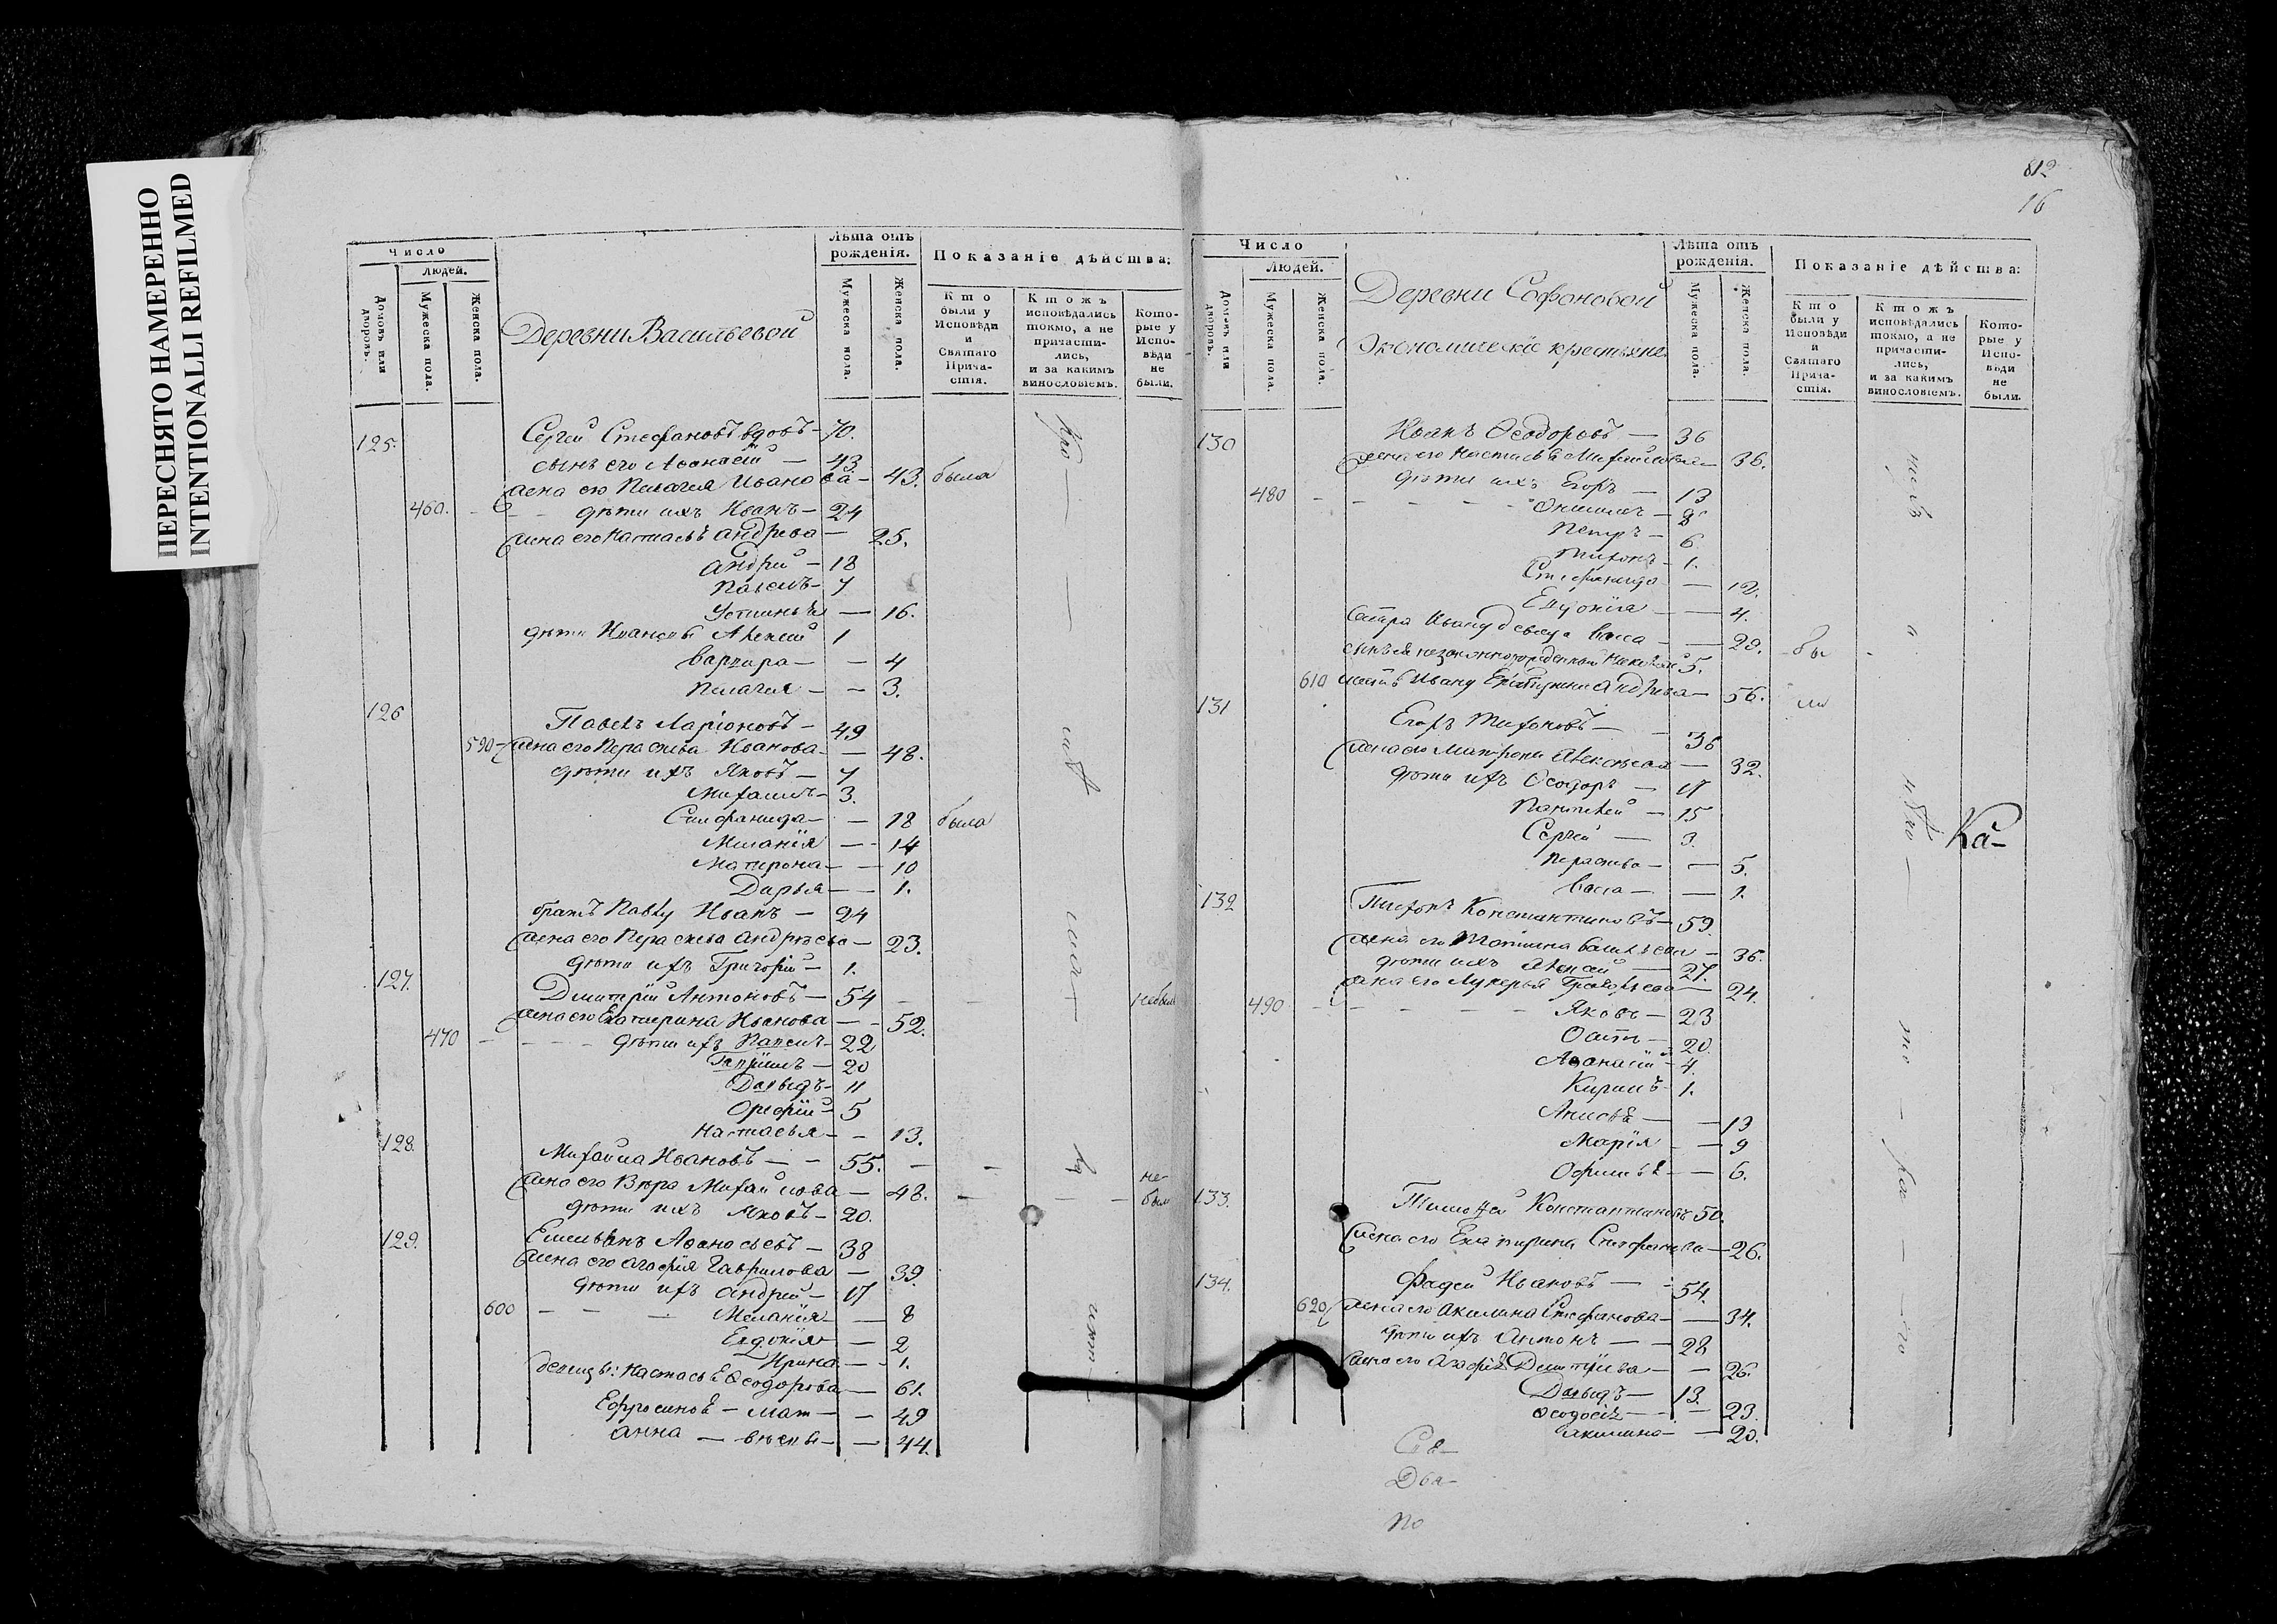 ПЕРЕСНЯТО НАМЕРЕННО
INTENTIONALLI REFILMED
Число
Людей.
Домовъ или дворовъ.
Мужеска пола.
Женска пола.
Деревни Васильевой
Лѣта отъ рожденія.
Мужеска пола.
Женска пола.
Показаніе дѣйства:
Кто были у Исповѣди и Святаго Причастія.
Ктожъ исповѣдались токмо, а не причастились, и за какимъ винословіемъ.
Которые у Исповѣди не были.
125. Сергей Стефановъ вдовъ — 70.
сынъ его Аѳанасій — 43
жена его Пелагея Иванова — 43. была
460. дѣти ихъ Иванъ — 24
жена его Настасья Андреева — 25.
Андрей — 18
Павелъ — 7
Устинья — 16.
дѣти Ивановы Алексей 1
Варвара — 4
Пелагея — 3.
126 Павелъ Ларіоновъ — 49
590 жена его Параскева Иванова — 48.
дѣти ихъ Яковъ — 7
Михаилъ — 3.
Стефанида — 18 была
Меланія — 14
Матрона — 10
Дарья — 1.
братъ Павлу Иванъ — 24
жена его Параскева Андреева — 23.
дѣти ихъ Григорій — 1.
127. Дмитрій Антоновъ — 54 небылъ
жена его Екатерина Иванова — 52.
470 дѣти ихъ 22
20
Давыдъ — 11
5
Настасья — 13.
128. Михайла Ивановъ — 55.
жена его Вѣра Михайлова — 48. не были
дѣти ихъ Яковъ — 20.
129. Емельянъ Аѳанасьевъ — 38
жена его Агафія Гаврилова — 39.
дѣти ихъ Андрей — 17
600 Меланія — 8
Евдокія — 2
Ирина — 1.
Настасья Ѳеодорова — 61.
49
Анна 44.
812
16
Число
Людей.
Домовъ или дворовъ.
Мужеска пола.
Женска пола.
Деревни Софоновой
Экономическіе крестьяне
Лѣта отъ рожденія.
Мужеска пола.
Женска пола.
Показаніе дѣйства:
Кто были у Исповѣди и Святаго Причастія.
Ктожъ исповѣдались токмо, а не причастились, и за какимъ винословіемъ.
Которые у Исповѣди не были.
130 Иванъ Ѳеодоровъ — 36
жена его Настасья Михайлова — 36.
480 дѣти ихъ Егоръ — 13
8
Петръ — 6
1.
Стефанида — 12.
4.
сестра Ивану девица Васса — 29.
сынъ ея незаконнорожденный 5.
610 мать Ивану Андреева — 56.
131 Егоръ Тихоновъ — 36
жена его Матрона Алексеева — 32.
дѣти ихъ Ѳеодоръ — 17
Пантелей — 15
Сергей — 3.
Параскева — 5.
Васса — 1.
Ка-
132 Тихонъ Константиновъ — 59.
жена его Татиана Васильева — 36.
дѣти ихъ Алексей — 27.
жена его Лукерья 24.
490 Яковъ — 23
20
Аѳанасій — 4.
Кирилъ — 1.
Анисья — 13
Марія — 9
6.
133. Тимоѳей Константиновъ 50.
жена его Екатерина Стефанова — 26.
134. Фадей Ивановъ — 54.
620 жена его Акилина Стефанова — 34.
дѣти ихъ Антонъ — 28
жена его Агафія Дмитріева — 26.
Давыдъ — 13.
Ѳеодосія — 23.
Акилина — 20.
Два-
по